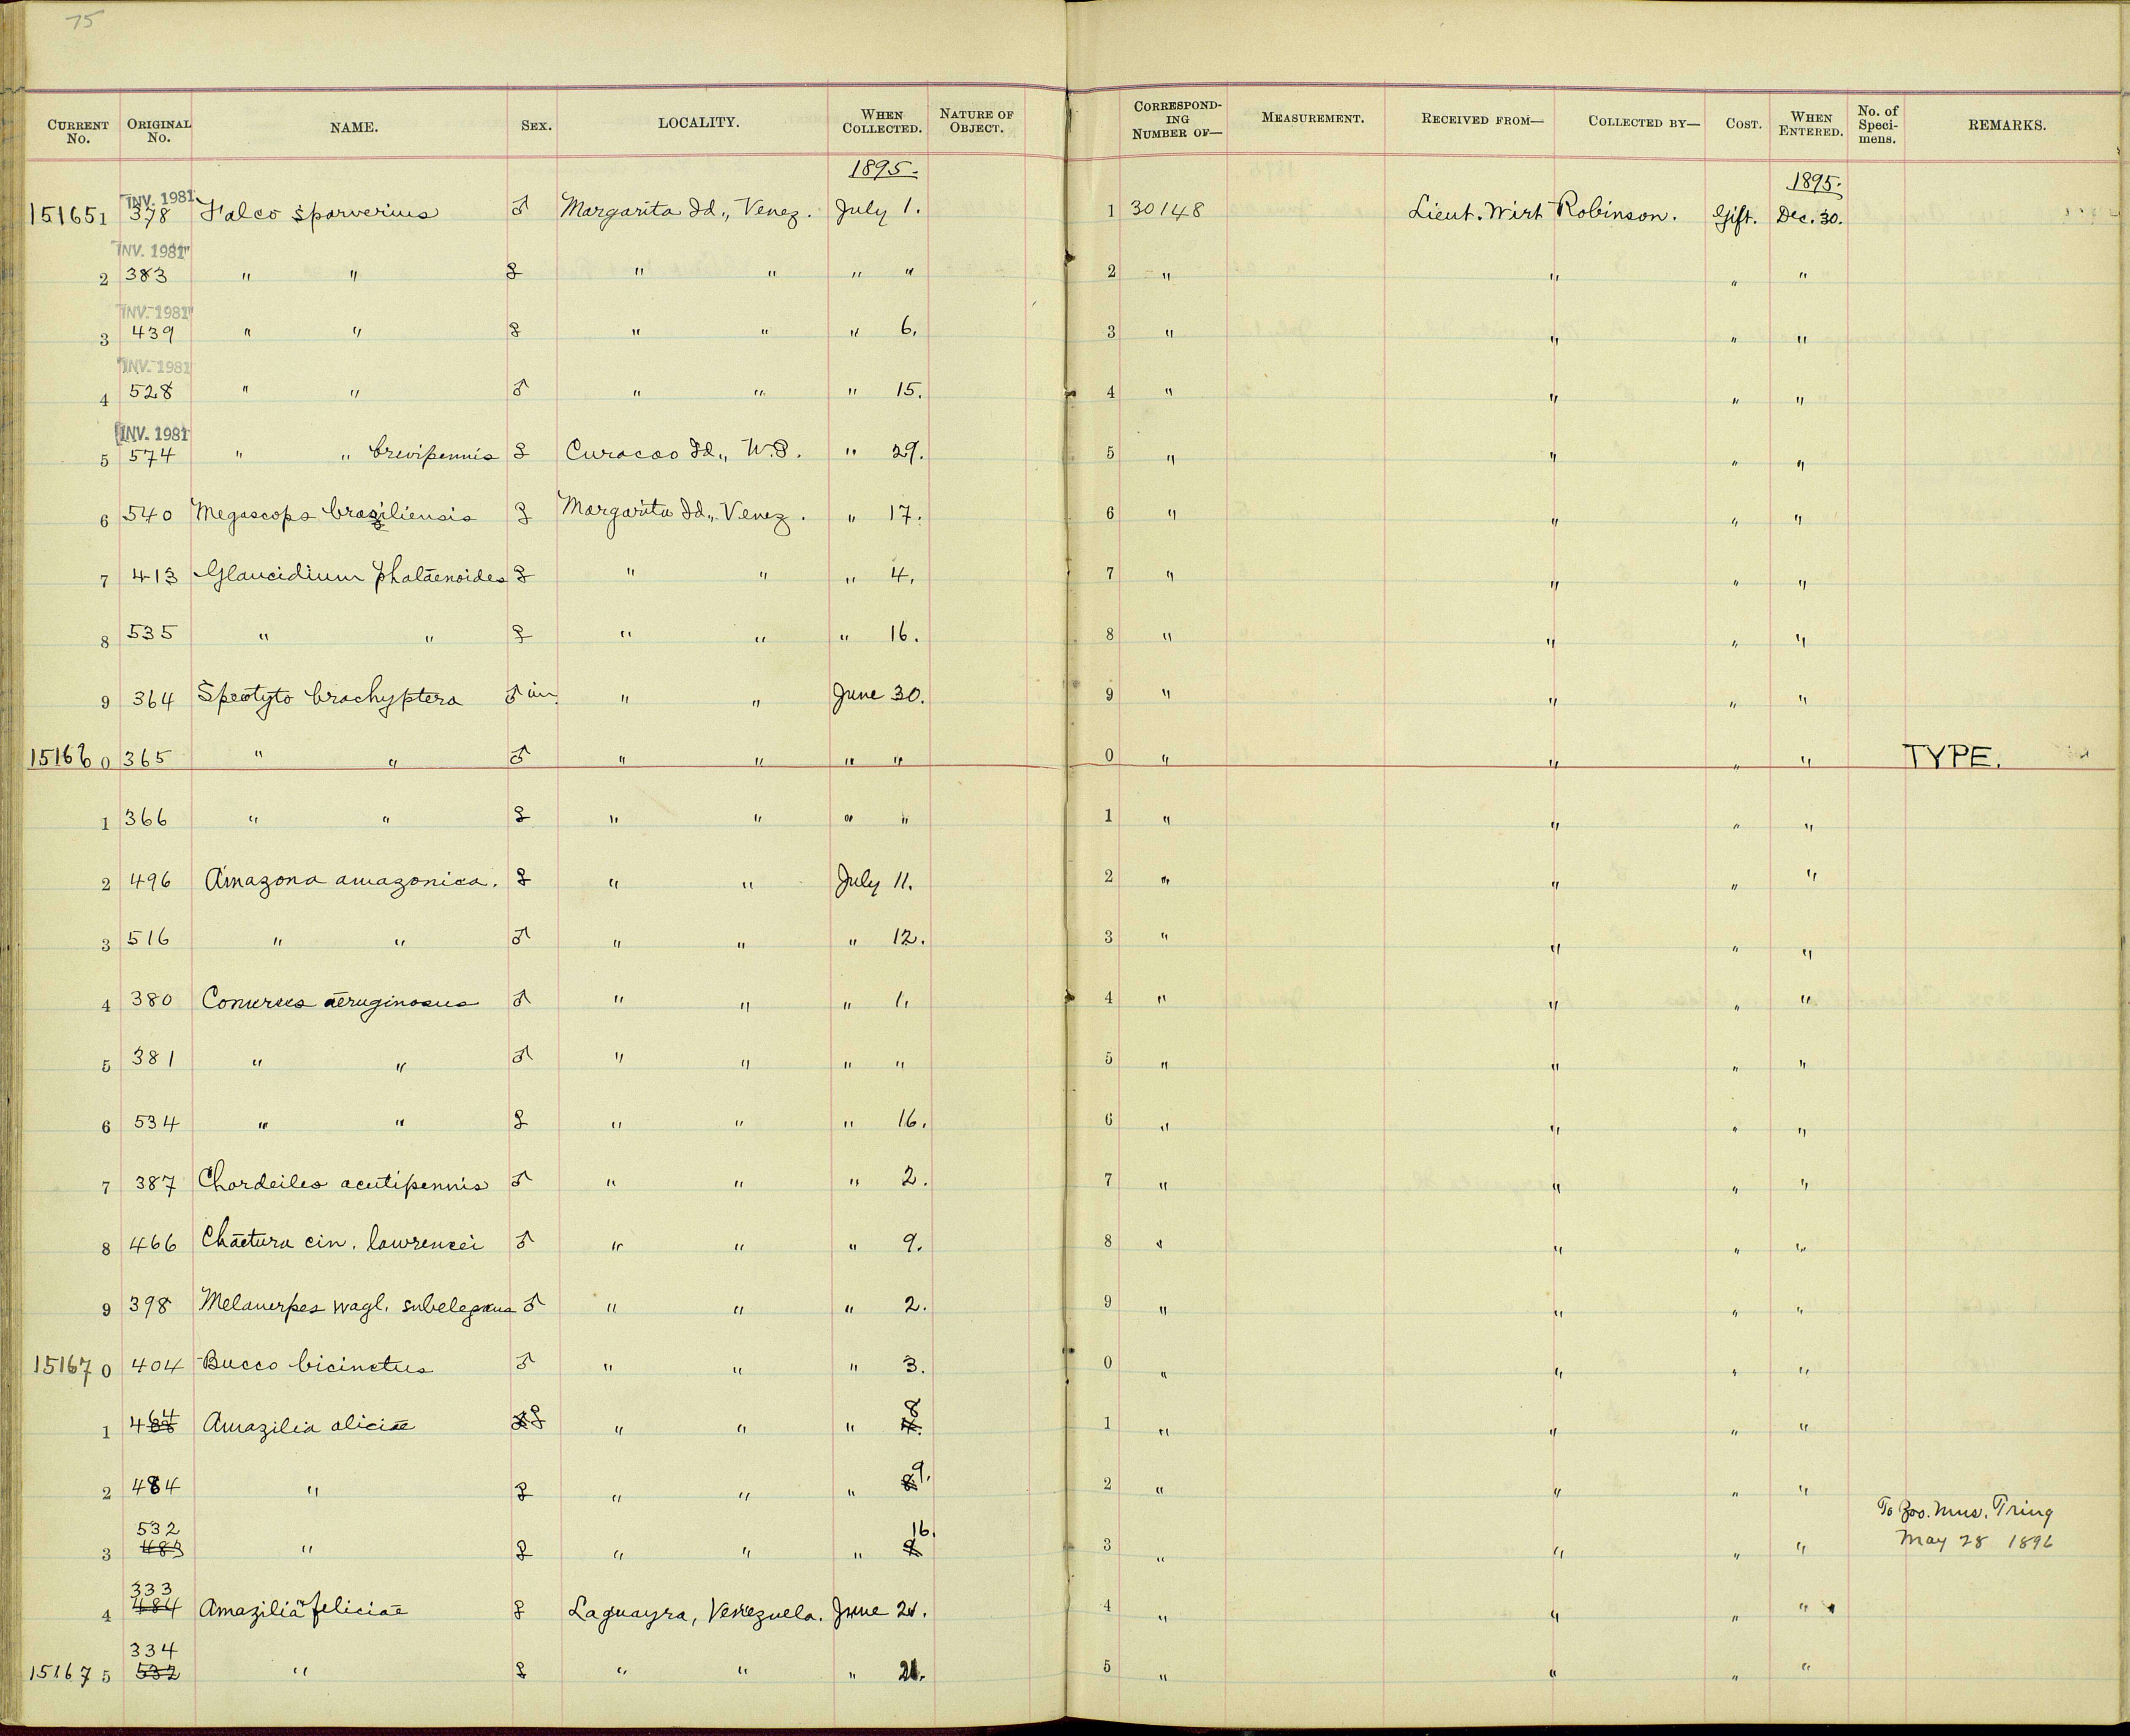 75
CURRENT No. ORIGINAL No. NAME. SEX. LOCALITY. WHEN COLLECTED. NATURE OF OBJECT. CORRESPONDING NUMBER OF— MEASUREMENT. RECEIVED FROM— COLLECTED BY— COST. WHEN ENTERED. No. of Specimens. REMARKS.
1895. 1895.
INV. 1981
151651 378 Falco sparverius ♂ Margarita Id., Venez. July 1. 1 30148 Lieut. Wirt Robinson. Gift. Dec. 30.
INV. 1981
2 383 " " ♀ " " " " 2 " " " "
INV. 1981
3 439 " " ♀ " " " 6. 3 " " " "
INV. 1981
4 528 " " ♂ " " " 15. 4 " " " "
INV. 1981
5 574 " " brevipennis ♀ Curacao Id., W.I. " 29. 5 " " " "
6 540 Megascops braziliensis ♀ Margarita Id., Venez. " 17. 6 " " " "
7 413 Glaucidium phalaenoides ♀ " " " 4. 7 " " " "
8 535 " " ♀ " " " 16. 8 " " " "
9 364 Speotyto brachyptera ♂ im. " " June 30. 9 " " " "
151660 365 " " ♂ " " " " 0 " " " " TYPE.
1 366 " " ♀ " " " " 1 " " " "
2 496 Amazona amazonica. ♀ " " July 11. 2 " " " "
3 516 " " ♂ " " " 12. 3 " " " "
4 380 Conurus aeruginosus ♂ " " " 1. 4 " " " "
5 381 " " ♂ " " " " 5 " " " "
6 534 " " ♀ " " " 16. 6 " " " "
7 387 Chordeiles acutipennis ♂ " " " 2. 7 " " " "
8 466 Chaetura cin. lawrencei ♂ " " " 9. 8 " " " "
9 398 Melanerpes wagl. subelegans ♂ " " " 2. 9 " " " "
151670 404 Bucco bicinctus ♂ " " " 3. 0 " " " "
1 464 Amazilia aliciae ♀ " " " 8 1 " " " "
2 484 " ♀ " " " 9. 2 " " " "
To Zoo. Mus. Tring
532 16.
3 483 " ♀ " " " 8 3 " " " " May 28 1896
333
4 484 Amazilia feliciae ♀ Laguayra, Venezuela. June 21. 4 " " " "
334
151675 532 " ♀ " " " 21. 5 " " " "